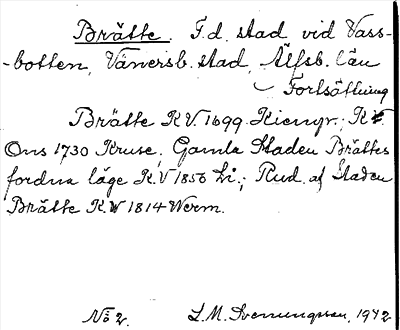 Brätte. F.d. stad vid Vass-
-botten, Vänersb. stad, Älfsb. län
Fortsättning
Brätte K.V. 1699 Kiengr.; K.V.
Ons 1730 Kruse; Gamla Staden Brättes
fordna läge K.V 1856 Li.; Rud. af Staden
Brätte K.V 1814 Werm.
No 2. L.M. Svenungsson, 1942